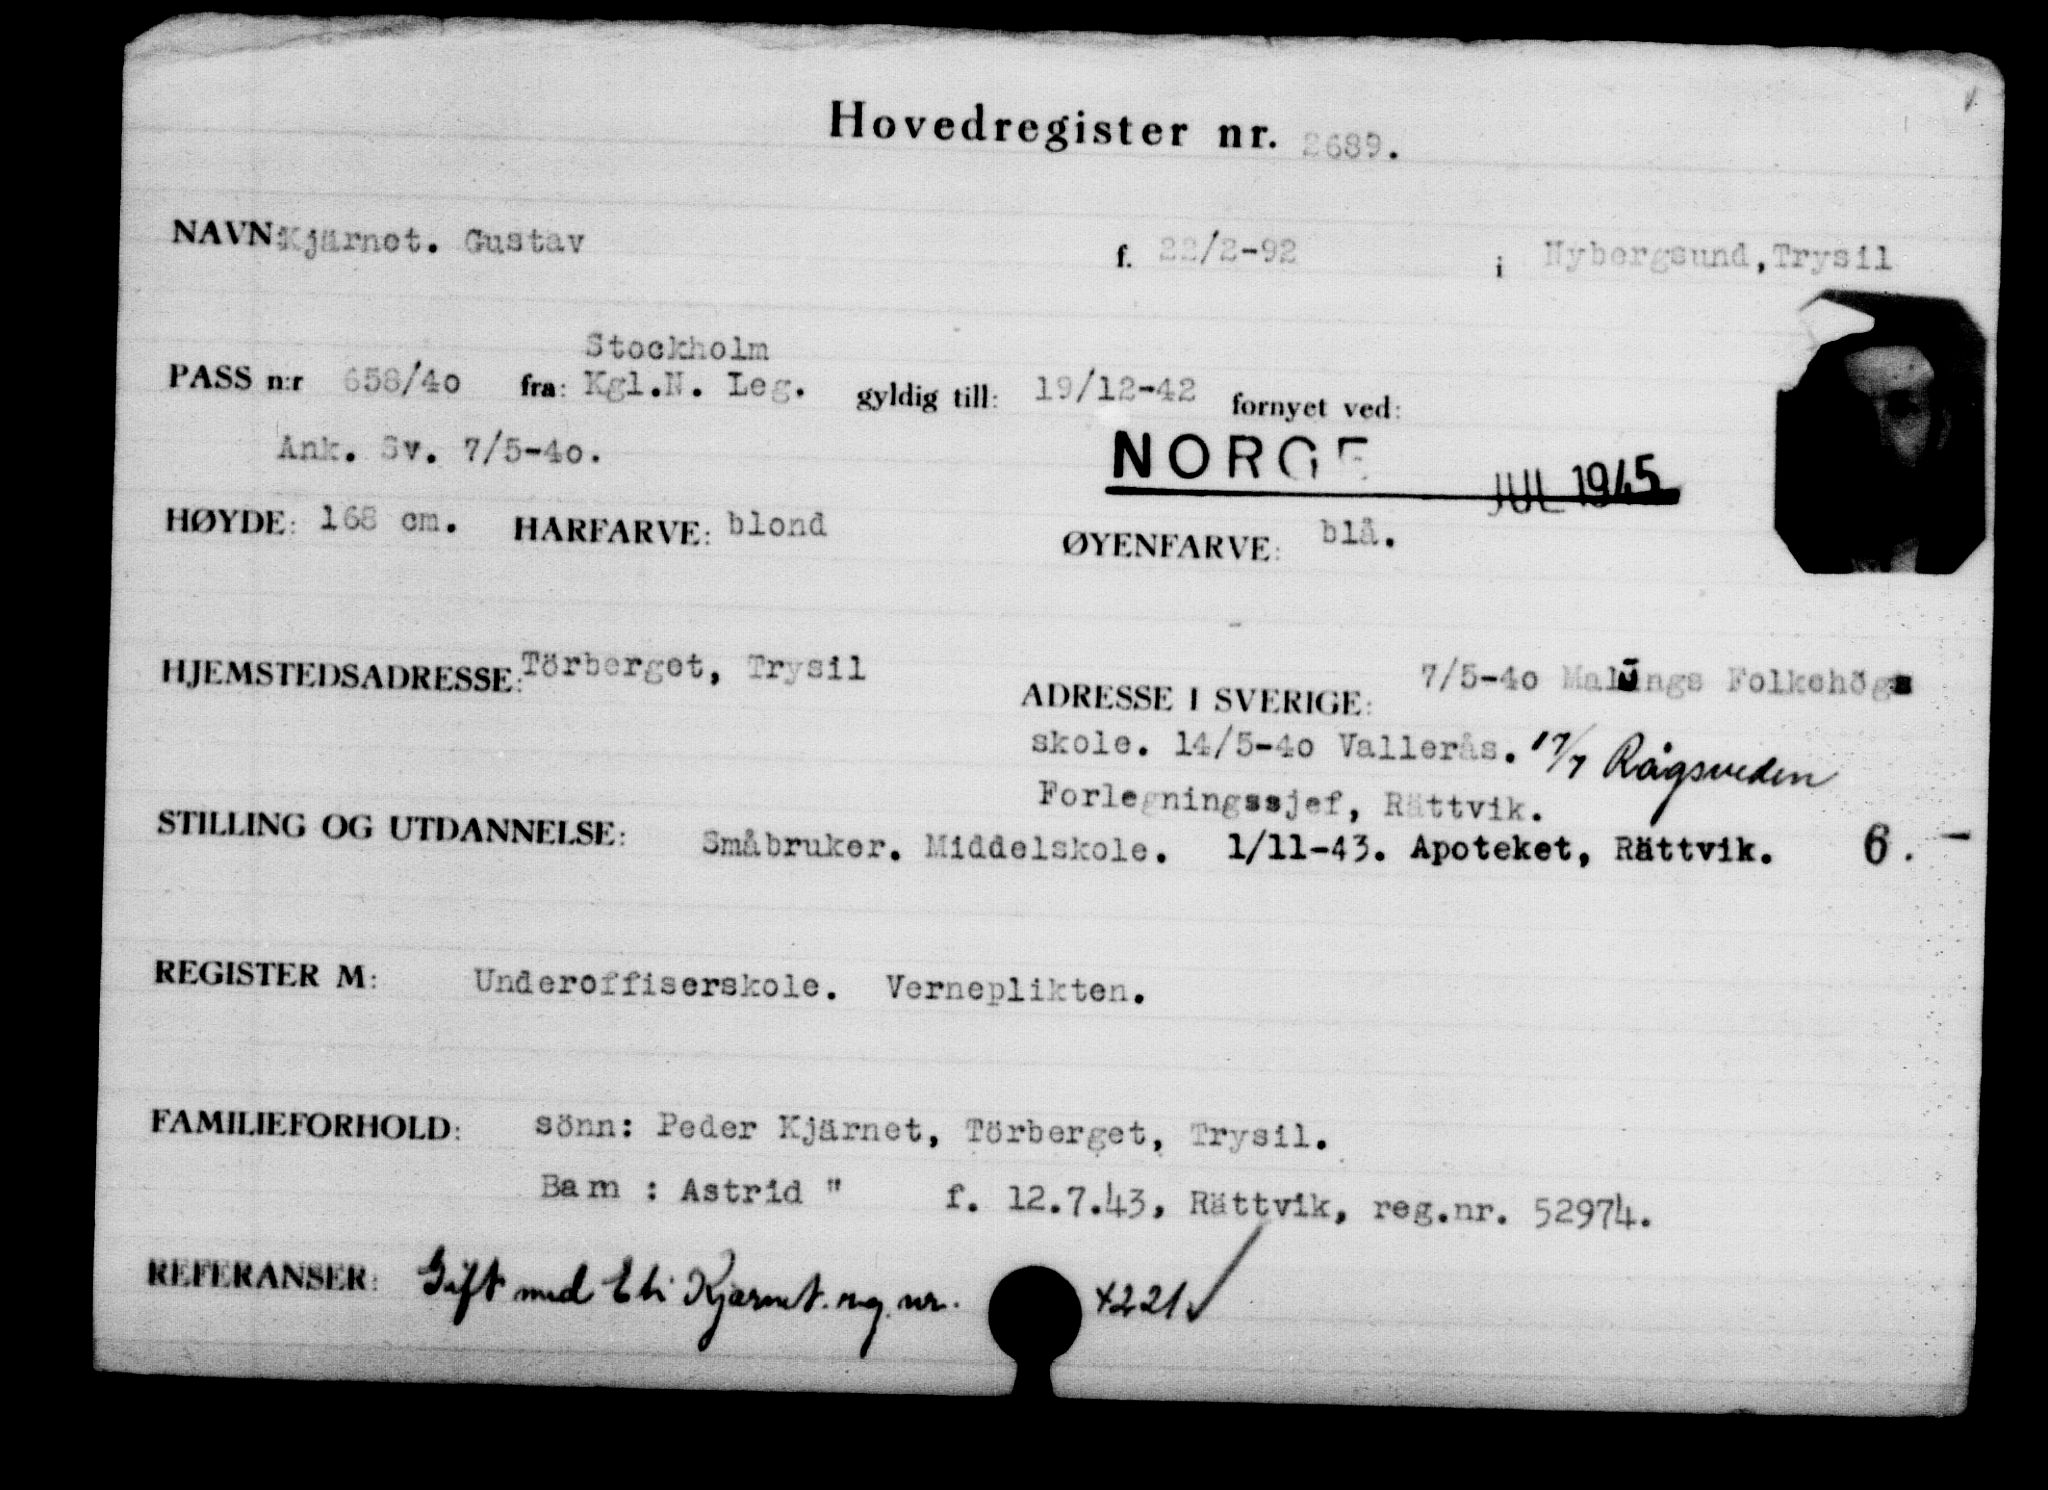 Hovedregister nr. 2689.
NAVN: Kjärnet. Gustav f. 22/2-92 i Nybergsund, Trysil
Stockholm
PASS n:r 658/40 fra: Kgl.N. Leg. gyldig till: 19/12-42 fornyet ved:
Ank. Sv. 7/5-40. NORGE JUL 1945
HØYDE: 168 cm. HARFARVE: blond ØYENFARVE: blå.
HJEMSTEDSADRESSE: Törberget, Trysil ADRESSE I SVERIGE: 7/5-40 Malungs Folkehögs
skole. 14/5-40 Vallerås. 17/7 Rågsveden
Forlegningssjef, Rättvik.
STILLING OG UTDANNELSE: Småbruker. Middelskole. 1/11-43. Apoteket, Rättvik. 6. -
REGISTER M: Underoffiserskole. Verneplikten.
FAMILIEFORHOLD: sönn: Peder Kjärnet, Törberget, Trysil.
Barn : Astrid " f. 12.7.43, Rättvik, reg.nr. 52974.
REFERANSER: Gift med Kjærnet. reg. nr. 4221